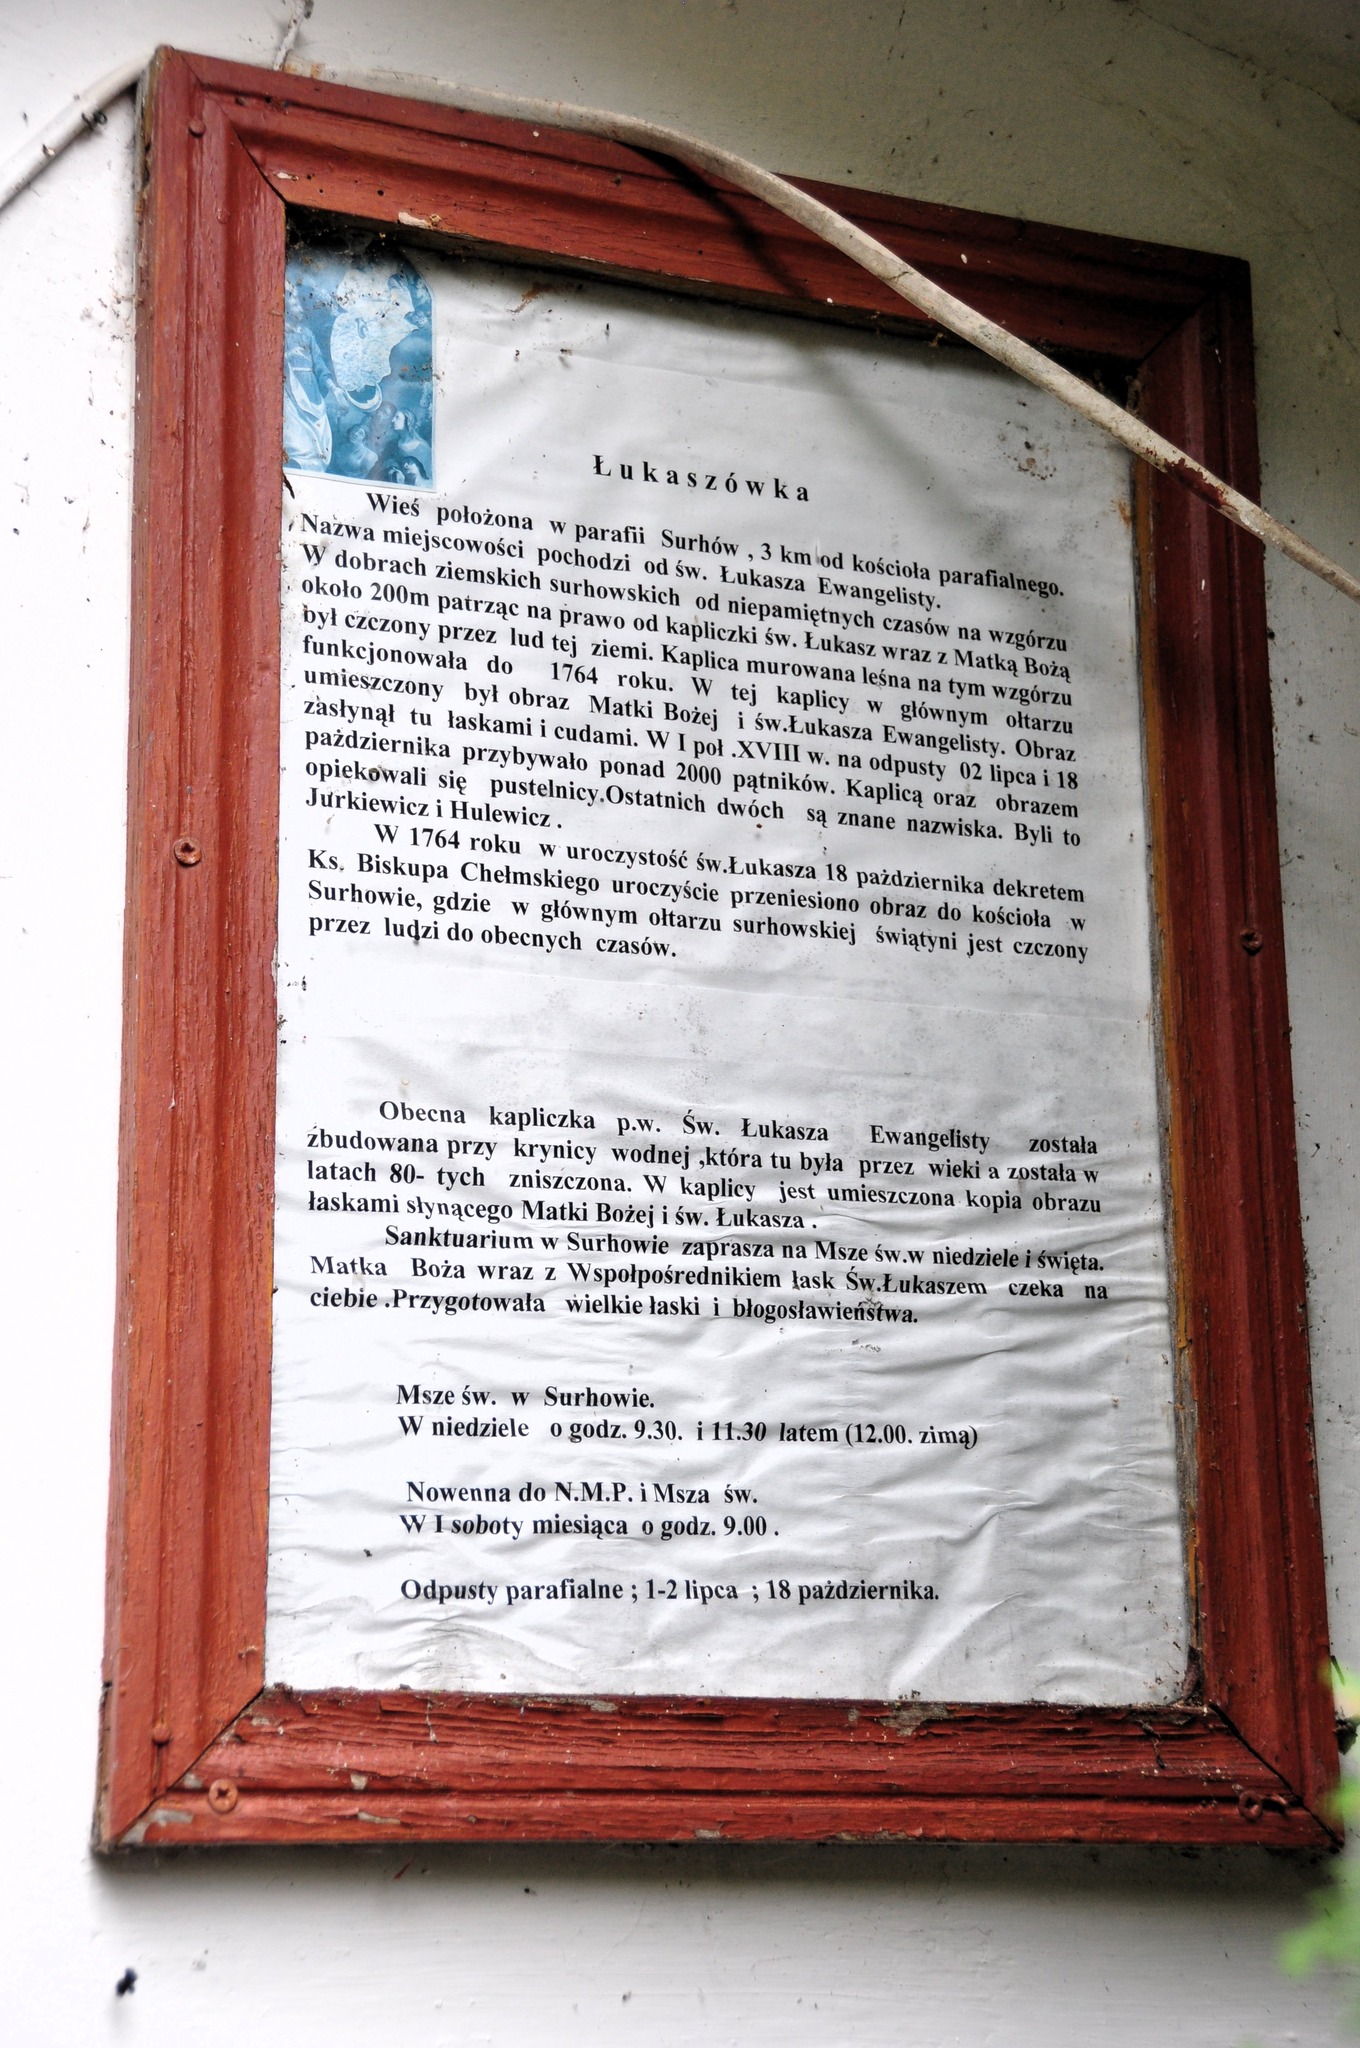 Łukaszówka
Wieś położona w parafii Surhów , 3 km od kościoła parafialnego.
Nazwa miejscowości pochodzi od św. Łukasza Ewangelisty.
W dobrach ziemskich surhowskich od niepamiętnych czasów na wzgórzu
około 200m patrząc na prawo od kapliczki św. Łukasz wraz z Matką Bożą
był czczony przez lud tej ziemi. Kaplica murowana leśna na tym wzgórzu
funkcjonowała do 1764 roku. W tej kaplicy w głównym ołtarzu
umieszczony był obraz Matki Bożej i św.Łukasza Ewangelisty. Obraz
zasłynął tu łaskami i cudami. W I poł .XVIII w. na odpusty 02 lipca i 18
pażdziernika przybywało ponad 2000 pątników. Kaplicą oraz obrazem
opiekowali się pustelnicy.Ostatnich dwóch są znane nazwiska. Byli to
Jurkiewicz i Hulewicz .
W 1764 roku w uroczystość św.Łukasza 18 pażdziernika dekretem
Ks. Biskupa Chełmskiego uroczyście przeniesiono obraz do kościoła w
Surhowie, gdzie w głównym ołtarzu surhowskiej świątyni jest czczony
przez ludzi do obecnych czasów.
Obecna kapliczka p.w. Św. Łukasza Ewangelisty została
zbudowana przy krynicy wodnej ,która tu była przez wieki a została w
latach 80- tych zniszczona. W kaplicy jest umieszczona kopia obrazu
łaskami słynącego Matki Bożej i św. Łukasza .
Sanktuarium w Surhowie zaprasza na Msze św.w niedziele i święta.
Matka Boża wraz z Wspołpośrednikiem łask Św.Łukaszem czeka na
ciebie .Przygotowała wielkie łaski i błogosławieństwa.
Msze św. w Surhowie.
W niedziele o godz. 9.30. i 11.30 latem (12.00. zimą)
Nowenna do N.M.P. i Msza św.
W I soboty miesiąca o godz. 9.00 .
Odpusty parafialne ; 1-2 lipca ; 18 pażdziernika.